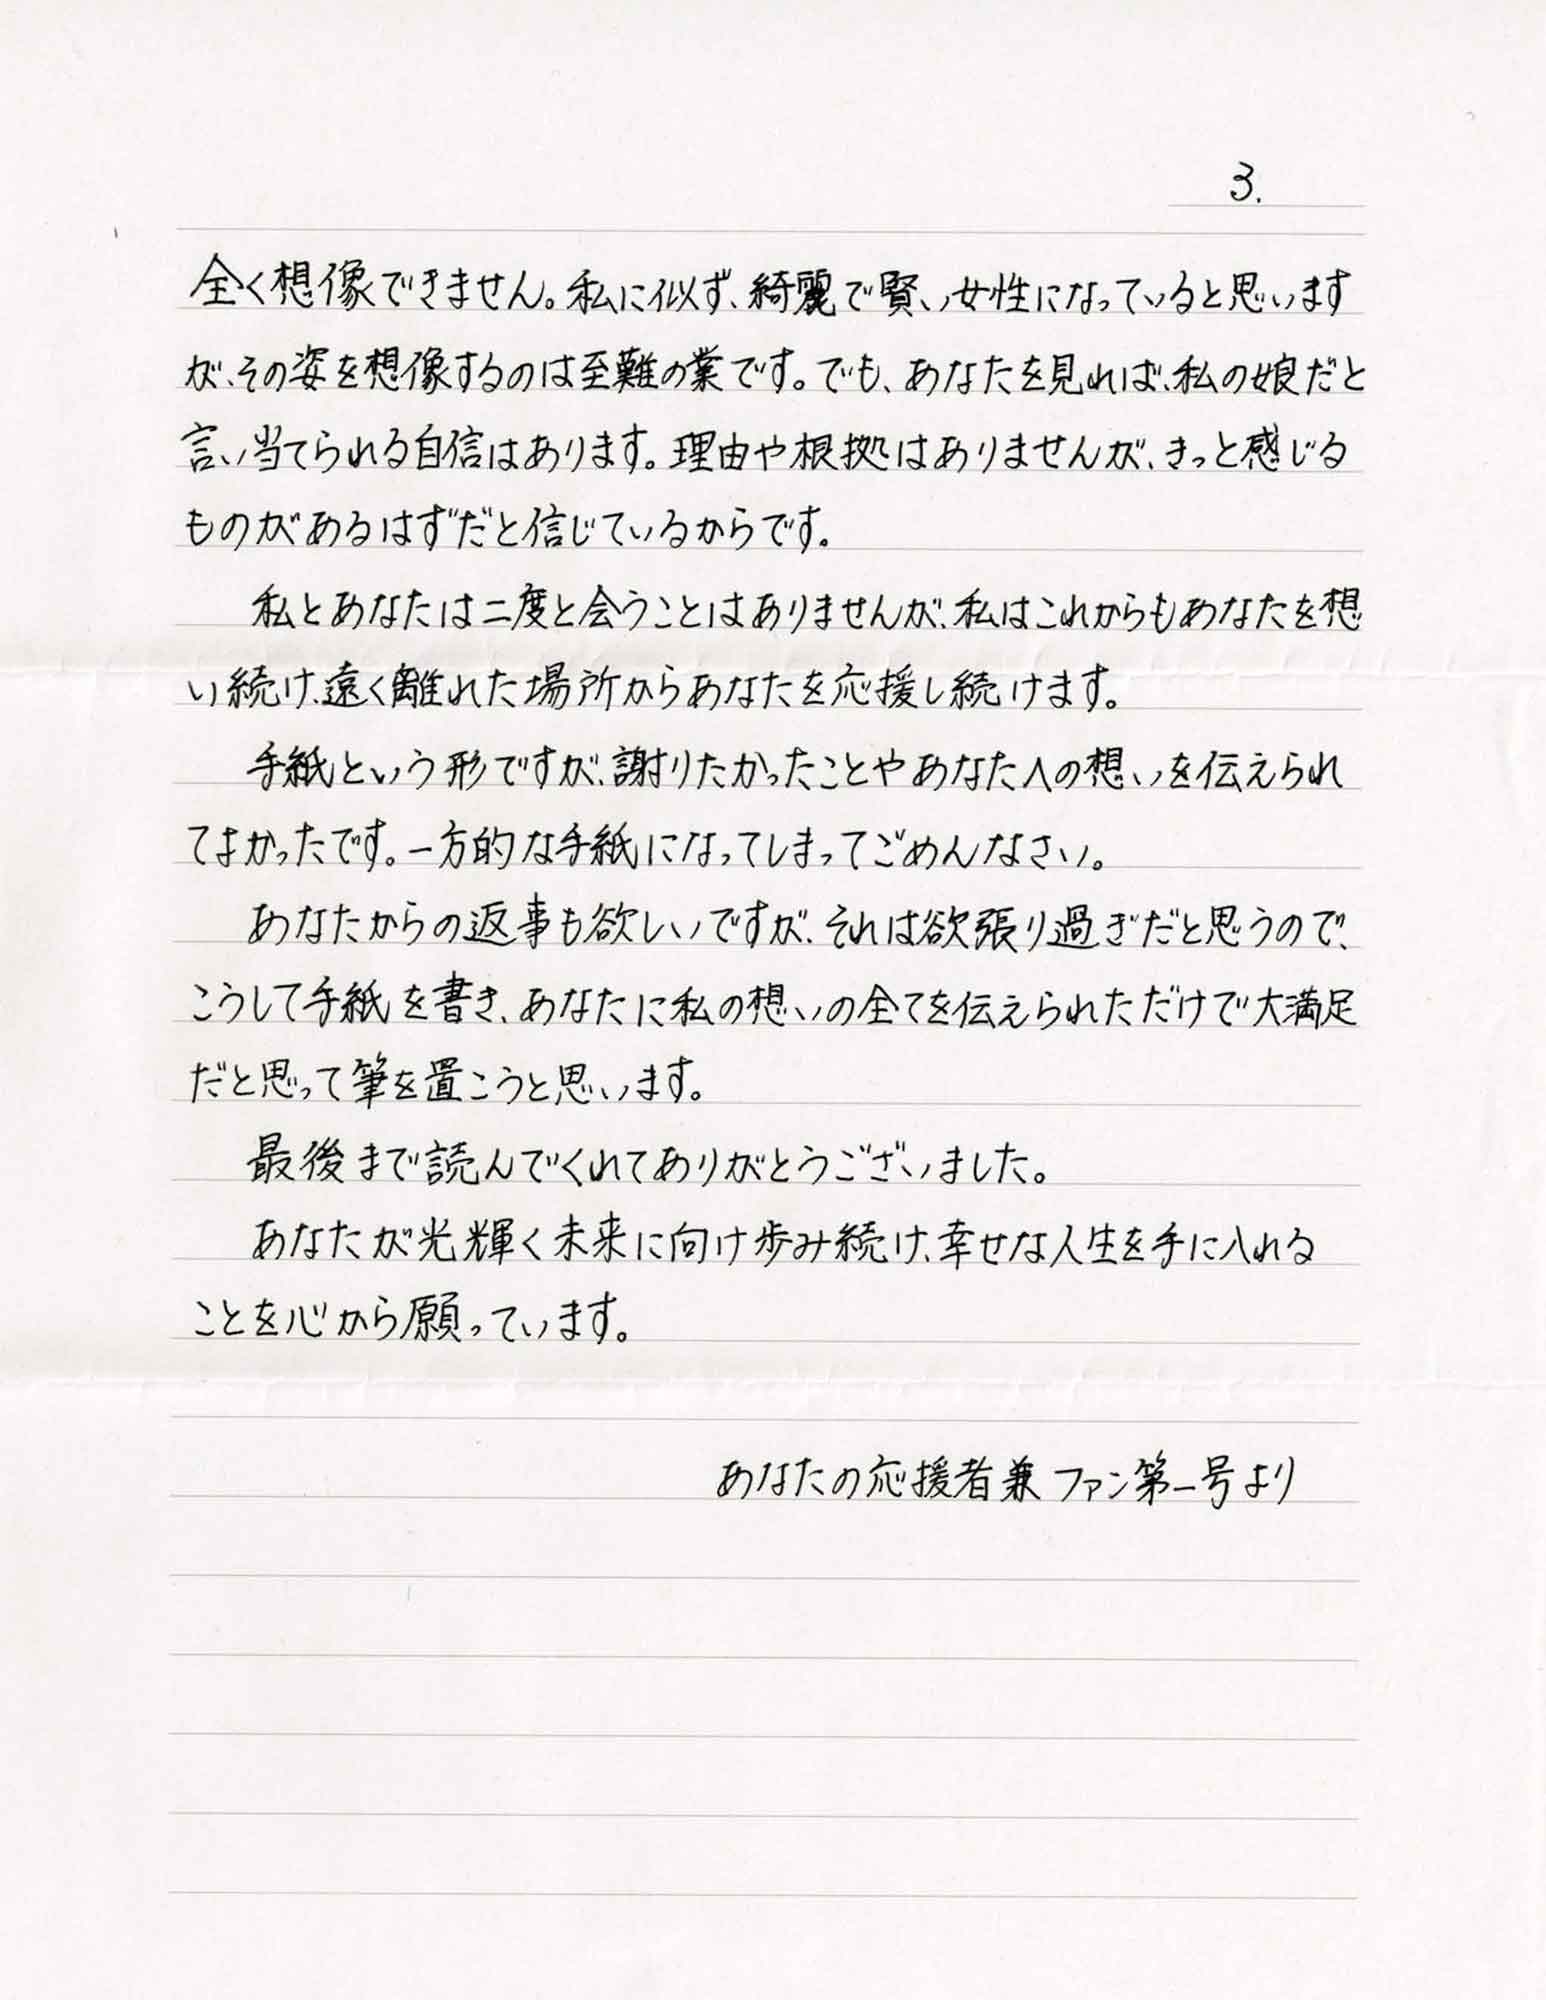 3.
全く想像できません。私に似ず、綺麗で賢い女性になっていると思います
が、その姿を想像するのは至難の業です。でも、あなたを見れば、私の娘だと
言い当てられる自信はあります。理由や根拠はありませんが、きっと感じる
ものがあるはずだと信じているからです。
私とあなたは二度と会うことはありませんが、私はこれからもあなたを想
い続け、遠く離れた場所からあなたを応援し続けます。
手紙という形ですが、謝りたかったことやあなたへの想いを伝えられ
てよかったです。一方的な手紙になってしまってごめんなさい。
あなたからの返事も欲しいですが、それは欲張り過ぎだと思うので、
こうして手紙を書き、あなたに私の想いの全てを伝えられただけで大満足
だと思って筆を置こうと思います。
最後まで読んでくれてありがとうございました。
あなたが光輝く未来に向け歩み続け、幸せな人生を手に入れる
ことを心から願っています。
あなたの応援者兼ファン第一号より